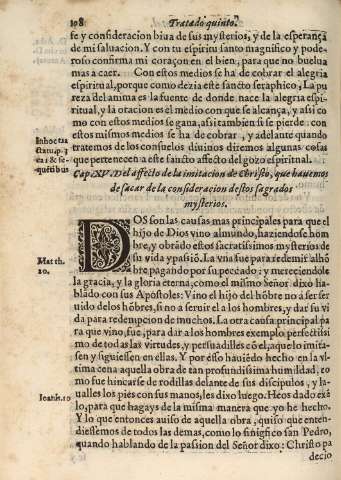 108
Tratado quinto.
fe y consideracion biua de sus mysterios, y de la esperança
de mi saluacion. Y con tu espiritu santo magnifico y pode-
roso confirma mi coraçon en el bien, para que no buelua
mas a caer. Con estos medios se ha de cobrar el alegria
espiritual, porque como dezia este sancto seraphico, La pu
reza del anima es la fuente de donde nace la alegria espi-
ritual, y la oracion es el medio con que se alcança, y assi co
mo con estos medios se gana, assi tambien si se pierde: con
estos mismos medios se ha de cobrar, y adelante quando
In hoc tra
tratemos de los consuelos diuinos diremos algunas cosas
que pertenecen a este sancto affecto del gozo espiritual.
sequẽtibus
Cap. XV. Del affecto de la imitacion de Christo, que hauemos
de sacar de la consideracion destos sagrados
mysterios.
DOS son las causas mas principales para que el
hijo de Dios vino al mundo, haziendose hom
bre, y obrãdo estos sacratissimos mysterios de
su vida y passiõ. La vna fue para redemir al hõ
Matth.
bre, pagando por su peccado: y mereciendole
20.
la gracia, y la gloria eterna, como el mismo Señor dixo ha
blãdo con sus Apostoles: Vino el hijo del hõbre no a ser ser
uido de los hõbres, si no a seruir el a los hombres, y dar su vi
da para redempcion de muchos. La otra causa principal pa
ra que vino, fue, para dar a los hombres exemplo perfectissi
mo de todas las virtudes, y persuadilles cõ el, aque lo imitas
sen y siguiessen en ellas. Y por esso hauiẽdo hecho en la vl
tima cena aquella obra de tan profundissima humildad, co
mo fue hincarse de rodillas delante de sus discipulos, y la-
Ioanis. 10
ualles los pies con sus manos, les dixo luego. Heos dado exẽ
lo, para que hagays de la misma manera que yo he hecho.
Y lo que entonces auiso de aquella obra, quiso que enten-
diessemos de todas las demas, como lo sinifico san Pedro,
quando hablando de la passion del Señor dixo: Christo pa
decio